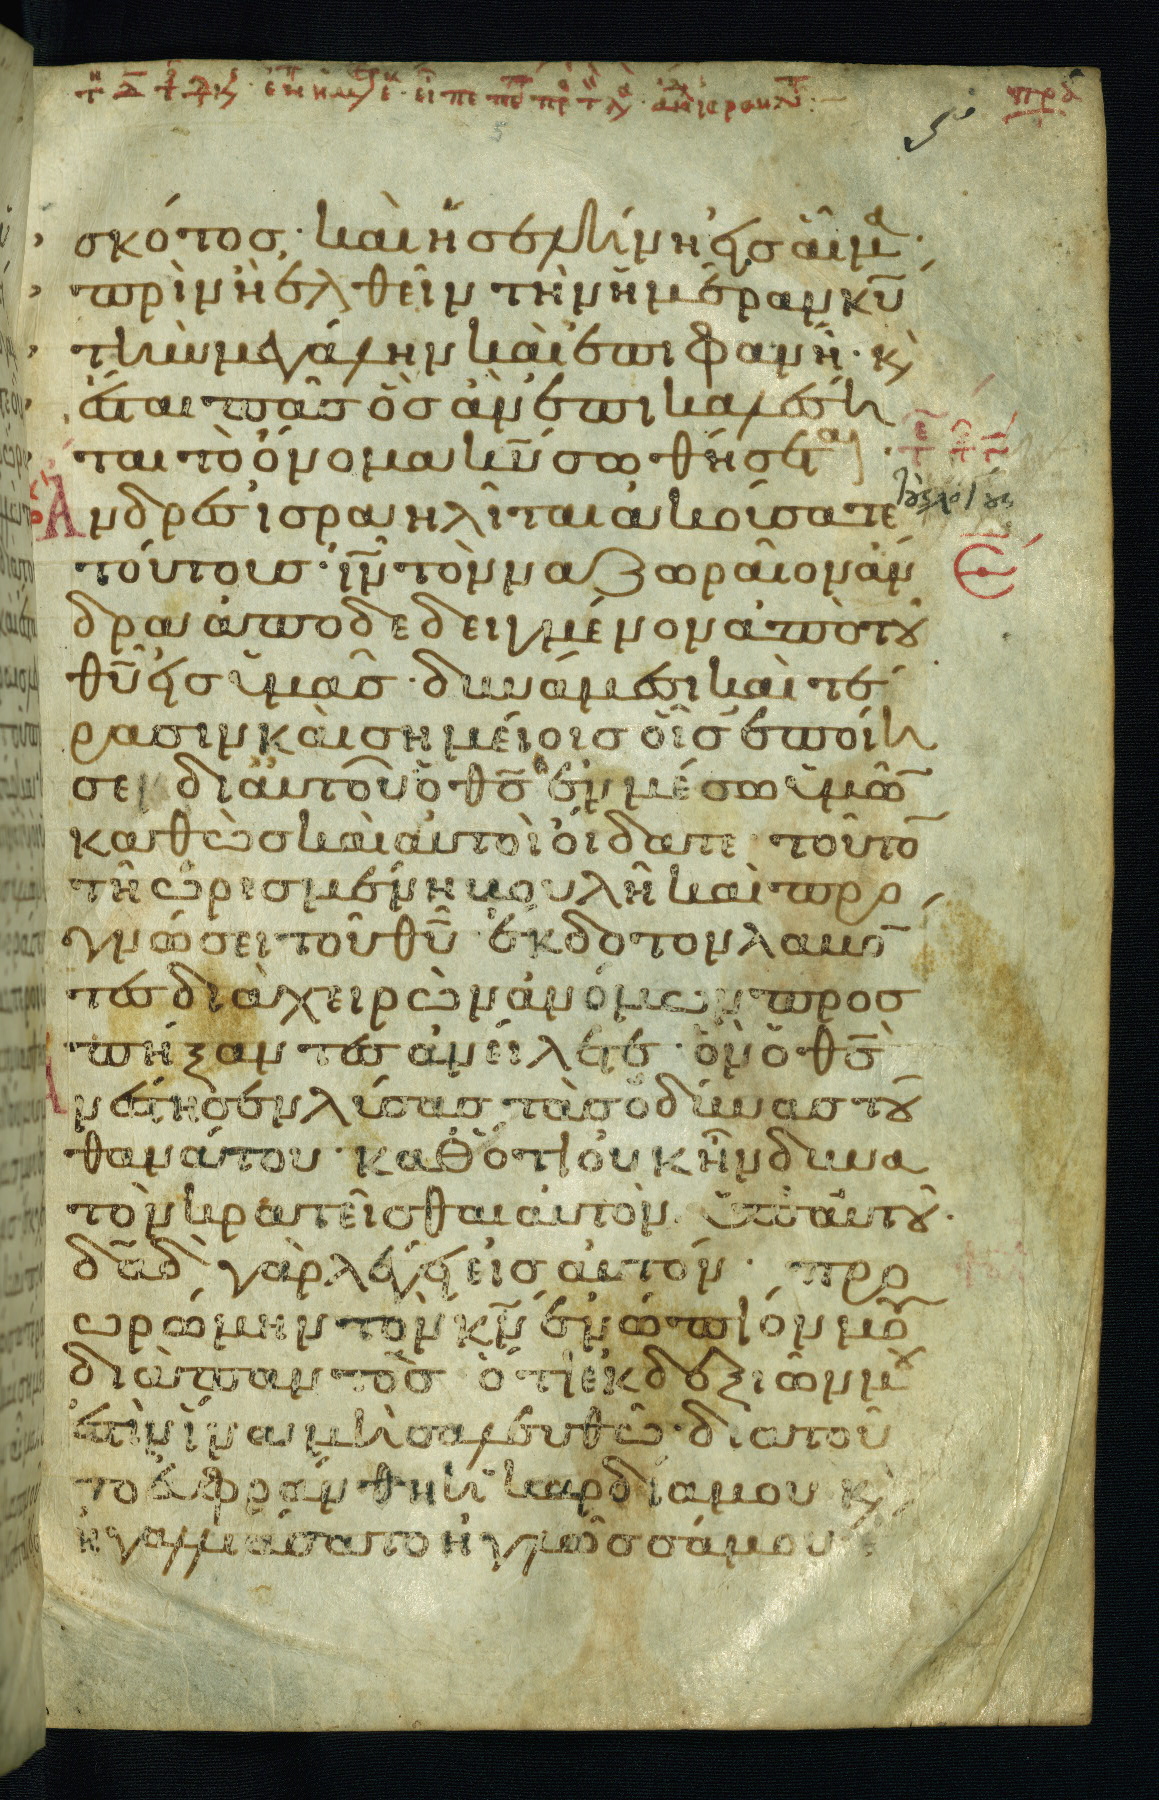 σκότος· καὶ ἡ σελήνη εἰς αἷμα·
πρὶν ἢ ἐλθεῖν τὴν ἡμέραν κῦ
τὴν μεγάλην καὶ ἐπιφανῆ· κ̀
ἔσται πᾶς ὃς ἂν ἐπικαλέση
ται τὸ ὄνομα κῦ σωθήσεται·
Ἄνδρες ἰσραηλῖται ἀκούσατε
τούτους· ιν̄ τὸν ναζωραῖον ἄν
δρα ἀποδεδειγμένον ἀπὸ τοῦ
θῦ εἰς ὑμᾶς· δυνάμεσι καὶ τέ
ρασιν καὶ σημείοις οἷς ἐποίη
σεν δι' αὐτοῦ ὁ θς̄ ἐν μέσω ὑμῶ̄
καθὼς καὶ αὐτοὶ οἴδατε τοῦτο̄
τῆ ὡρισμένη βουλῆ καὶ προ
γνώσει τοῦ θῦ ἔκδοτον λαβό̄
τες διὰ χειρῶν ἀνόμων προσ
πήξαντες ἀνείλετε· ὃν ὁ θς̄
Ἀνέστησεν λύσας τὰς ὠδῖνας τοῦ
θανάτου· καθότι οὐκ ἦν δυνα
τὸν κρατεῖσθαι αὐτὸν ὑπ' αὐτοῦ·
δᾱδ̀ γὰρ λέγει εἰς αὐτόν· προ
ωρώμην τὸν κν̄ ἐνώπιόν μου
διὰ παντὸς ὅτι ἐκ δεξιῶν μου
ἐστὶν ἵνα μὴ σαλευθῶ· διὰ τοῦ
το εὐφράνθη ἡ καρδία μου κ̀
ἠγαλλιάσατο ἡ γλῶσσά μου